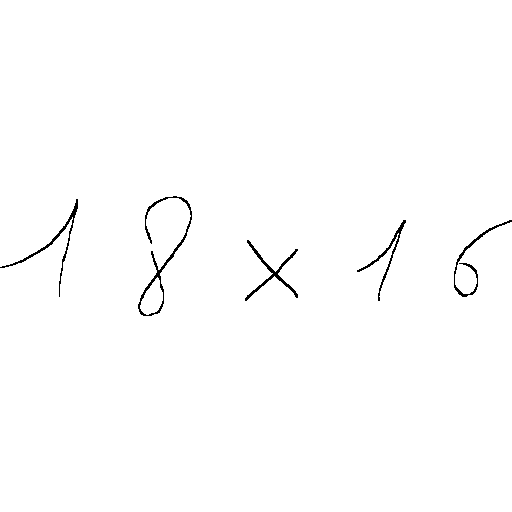 18 × 16